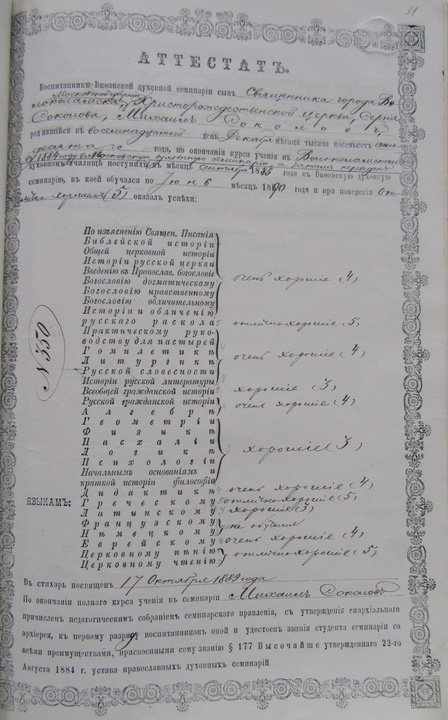 51
АТТЕСТАТЪ.
Воспитанникъ Виѳанской духовной семинаріи сынъ Священника города Во
Московской губерніи
локоламска, Христорождественской церкви, Сергія
Соколова, Михаилъ Соколовъ,
родившійся въ восемнадцатый день Декабря мѣсяца тысяча восемьсотъ
года, по окончаніи курса ученія въ Волоколамскомъ
въ 1884 году въ Московскую духовную семинарію, а
духовномъ училищѣ поступилъ въ мѣсяцѣ Сентябрѣ 1885 года въ Виѳанскую духовную
семинарію, въ коей обучался по Іюнь мѣсяцъ 1890 года и при поведеніи от
хорошемъ (5) оказалъ успѣхи:
По изъясненію Священ. Писанія
Библейской исторіи
Общей церковной исторіи
Исторіи русской церкви
Введенію въ Православ. богословіе
Богословію догматическому очень хорошіе (4)
Богословію нравственному
Богословію обличительному
Исторіи и обличенію
русскаго раскола отлично хорошіе (5)
Практическому руко-
водству для пастырей
Гомилетикѣ очень хорошіе (4)
Литургикѣ
№ 250
Русской словесности
Исторіи русской литературы
Всеобщей гражданской исторіи хорошіе (3)
Русской гражданской исторіи очень хорошіе (4)
Алгебрѣ
Геометріи
Физикѣ
Пасхаліи
Логикѣ хорошіе (3)
Психологіи
Начальнымъ основаніямъ и
краткой исторіи философіи
Дидактикѣ очень хорошіе (4)
ЯЗЫКАМЪ:
Греческому отлично хорошіе (5)
Латинскому хорошіе (3)
Французскому
Нѣмецкому не обучался
Еврейскому очень хорошіе (4)
Церковному пѣнію
Церковному чтенію отлично хорошіе (5)
Въ стихарь посвященъ 17 Октября 1889 года
По окончаніи полнаго курса ученія въ семинаріи Михаилъ Соколовъ
причисленъ педагогическимъ собраніемъ семинарскаго правленія, съ утвержденія епархіальнаго
архіерея, къ первому разряду воспитанниковъ оной и удостоенъ званія студента семинаріи со
всѣми преимуществами, присвоенными сему званію § 177 Высочайше утвержденнаго 22-го
Августа 1884 г. устава православныхъ духовныхъ семинарій.